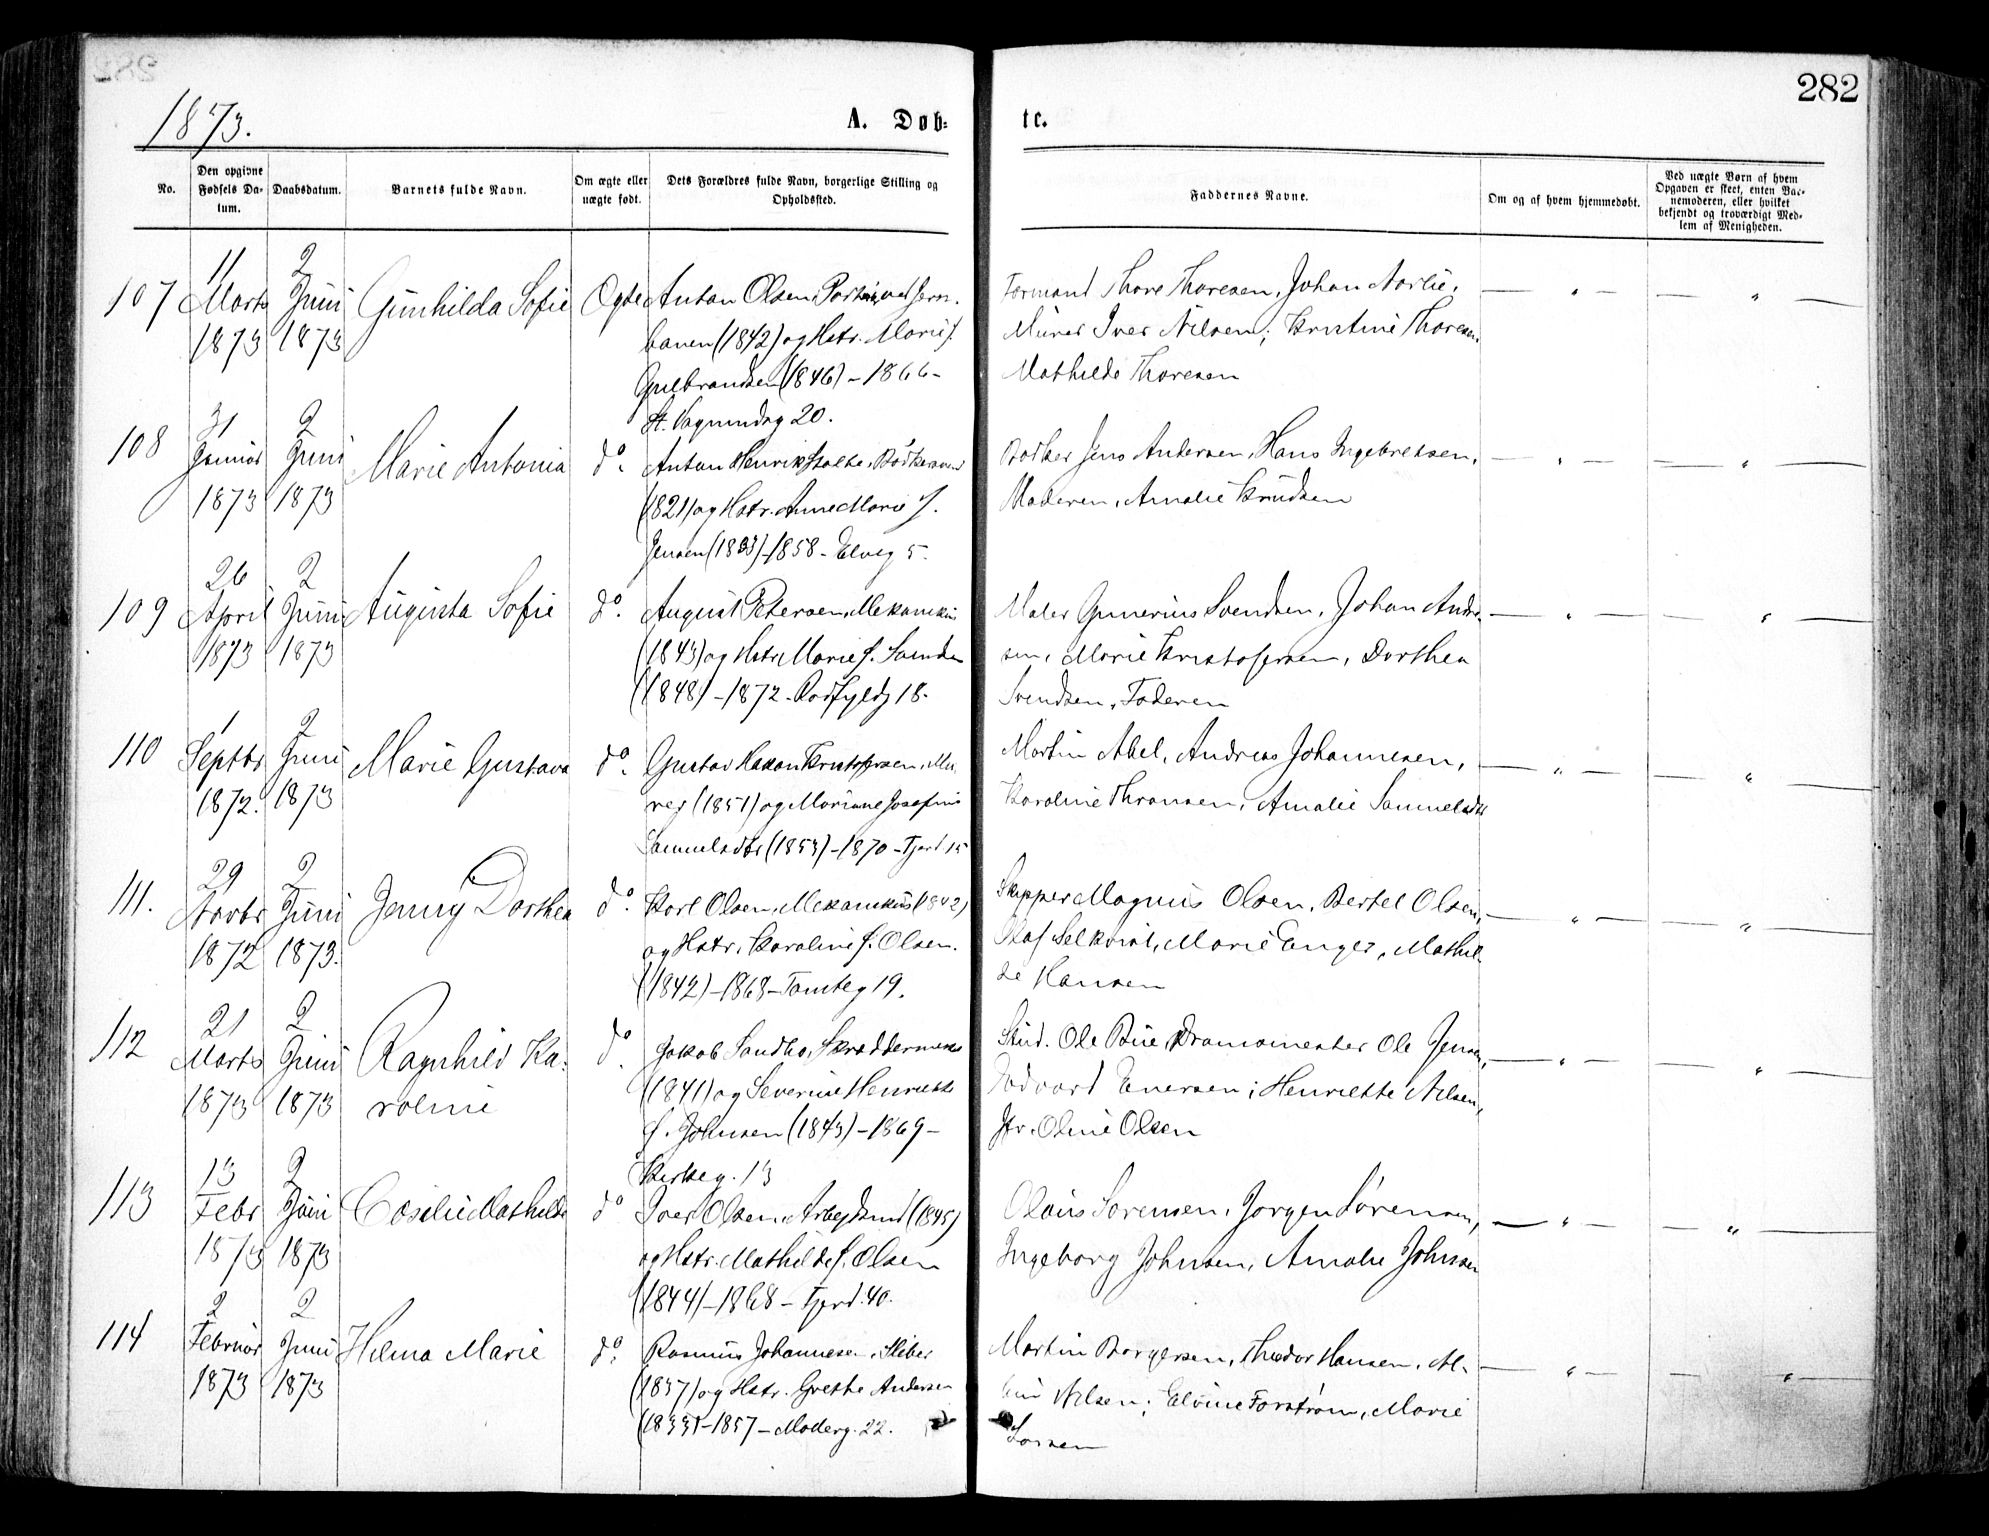 282
1873.
A. Døb-
te.
No.
Den opgivne Fødsels Da-tum.
Daabsdatum.
Barnets fulde Navn.
Om ægte eller uægte født.
Dets Forældres fulde Navn, borgerlige Stilling og Opholdssted.
Faddernes Navne.
Om og af hvem hjemmedøbt.
Ved uægte Børn af hvem Opgaven er skeet, enten Bar-nemoderen, eller hvilket bekjendt og troværdigt Med-lem af Menigheden.
107
11 Marts 1873
2 Juni 1873
Gunhilda Sofie
Ægte
Anton Olsen, ved Jern-
banen (1842) og Hstr. Marie f.
Gulbrandsen (1846) - 1866 -
20.
Formand Thore Thoresen, Johan Aarlie,
Murer Iver Nilsen; Kristine Thoresen,
Mathilde Thoresen
108
31 Januar 1873
2 Juni 1873
Marie Antonia
do.
Anton Henrik
(1821) og Hstr. Anne Marie f.
Jensen (1833) - 1858 - Elveg 5.
Bødker Jens Andersen, Hans Ingebretsen,
Moderen, Amalie Knudsen
109
26 April 1873
2 Juni 1873
Augusta Sofie
do.
August Petersen, Mekanikus
(1843) og Hstr. Marie f.
(1848) - 1872 - 18.
Maler Gunerius Svendsen, Johan Andre-
sen, Marie Kristofersen, Dorthea
Svendsen, Faderen
110
1 Septbr 1872.
2 Juni 1873
Marie Gustava
do.
Gustav Hakon Kristofersen, Mu-
rer (1851) og Mariane Josefine
Samuelsdtr (1853) - 1870 - Fjerd 15
Martin Abel, Andreas Johannesen,
Karoline Thronsen, Amalie Samuelsdtr
111.
29 Novbr 1872
2 Juni 1873.
Jenny Dorthea
do.
Karl Olsen, Mekanikus (1842)
og Hstr. Karoline f. Olsen.
(1842) - 1868 - Tomteg 19.
Skipper Magnus Olsen, Bertel Olsen,
Olaf Selkvist, Marie Enger, Mathil-
de Hansen
112
21 Marts 1873
2 Juni 1873
Ragnhild Ka-
roline
do.
Jakob Sandbo, Skræddermester
(1841) og Severine Henriette
f. Johnsen (1843) - 1869 -
Kirkeg. 13
Stud. Ole Bue, Ole Jensen,
Edvard Enersen; Henriette Nilsen,
Jfr. Oline Olsen
113
13 Febr 1873
2 Juni 1873
Cesilie Mathilde
do
Iver Olsen, Arbeidsmd (1845)
og Hstr. Mathilde f. Olsen
(1844) - 1868 - Fjerd. 40.
Olaus Sorensen, Jørgen Sørensen,
Ingeborg Johnsen, Amalie Johnsen
114
2 Februar 1873
2 Juni 1873
Hilma Marie
do.
Rasmus Johannesen, Sliber
(1837) og Hstr. Grethe Andersen
(1833) - 1857 - Møllerg. 22.
Martin Borgersen, Theodor Hansen, Al-
bin Nilsen; Elvine Forstrøm, Marie
Larsen